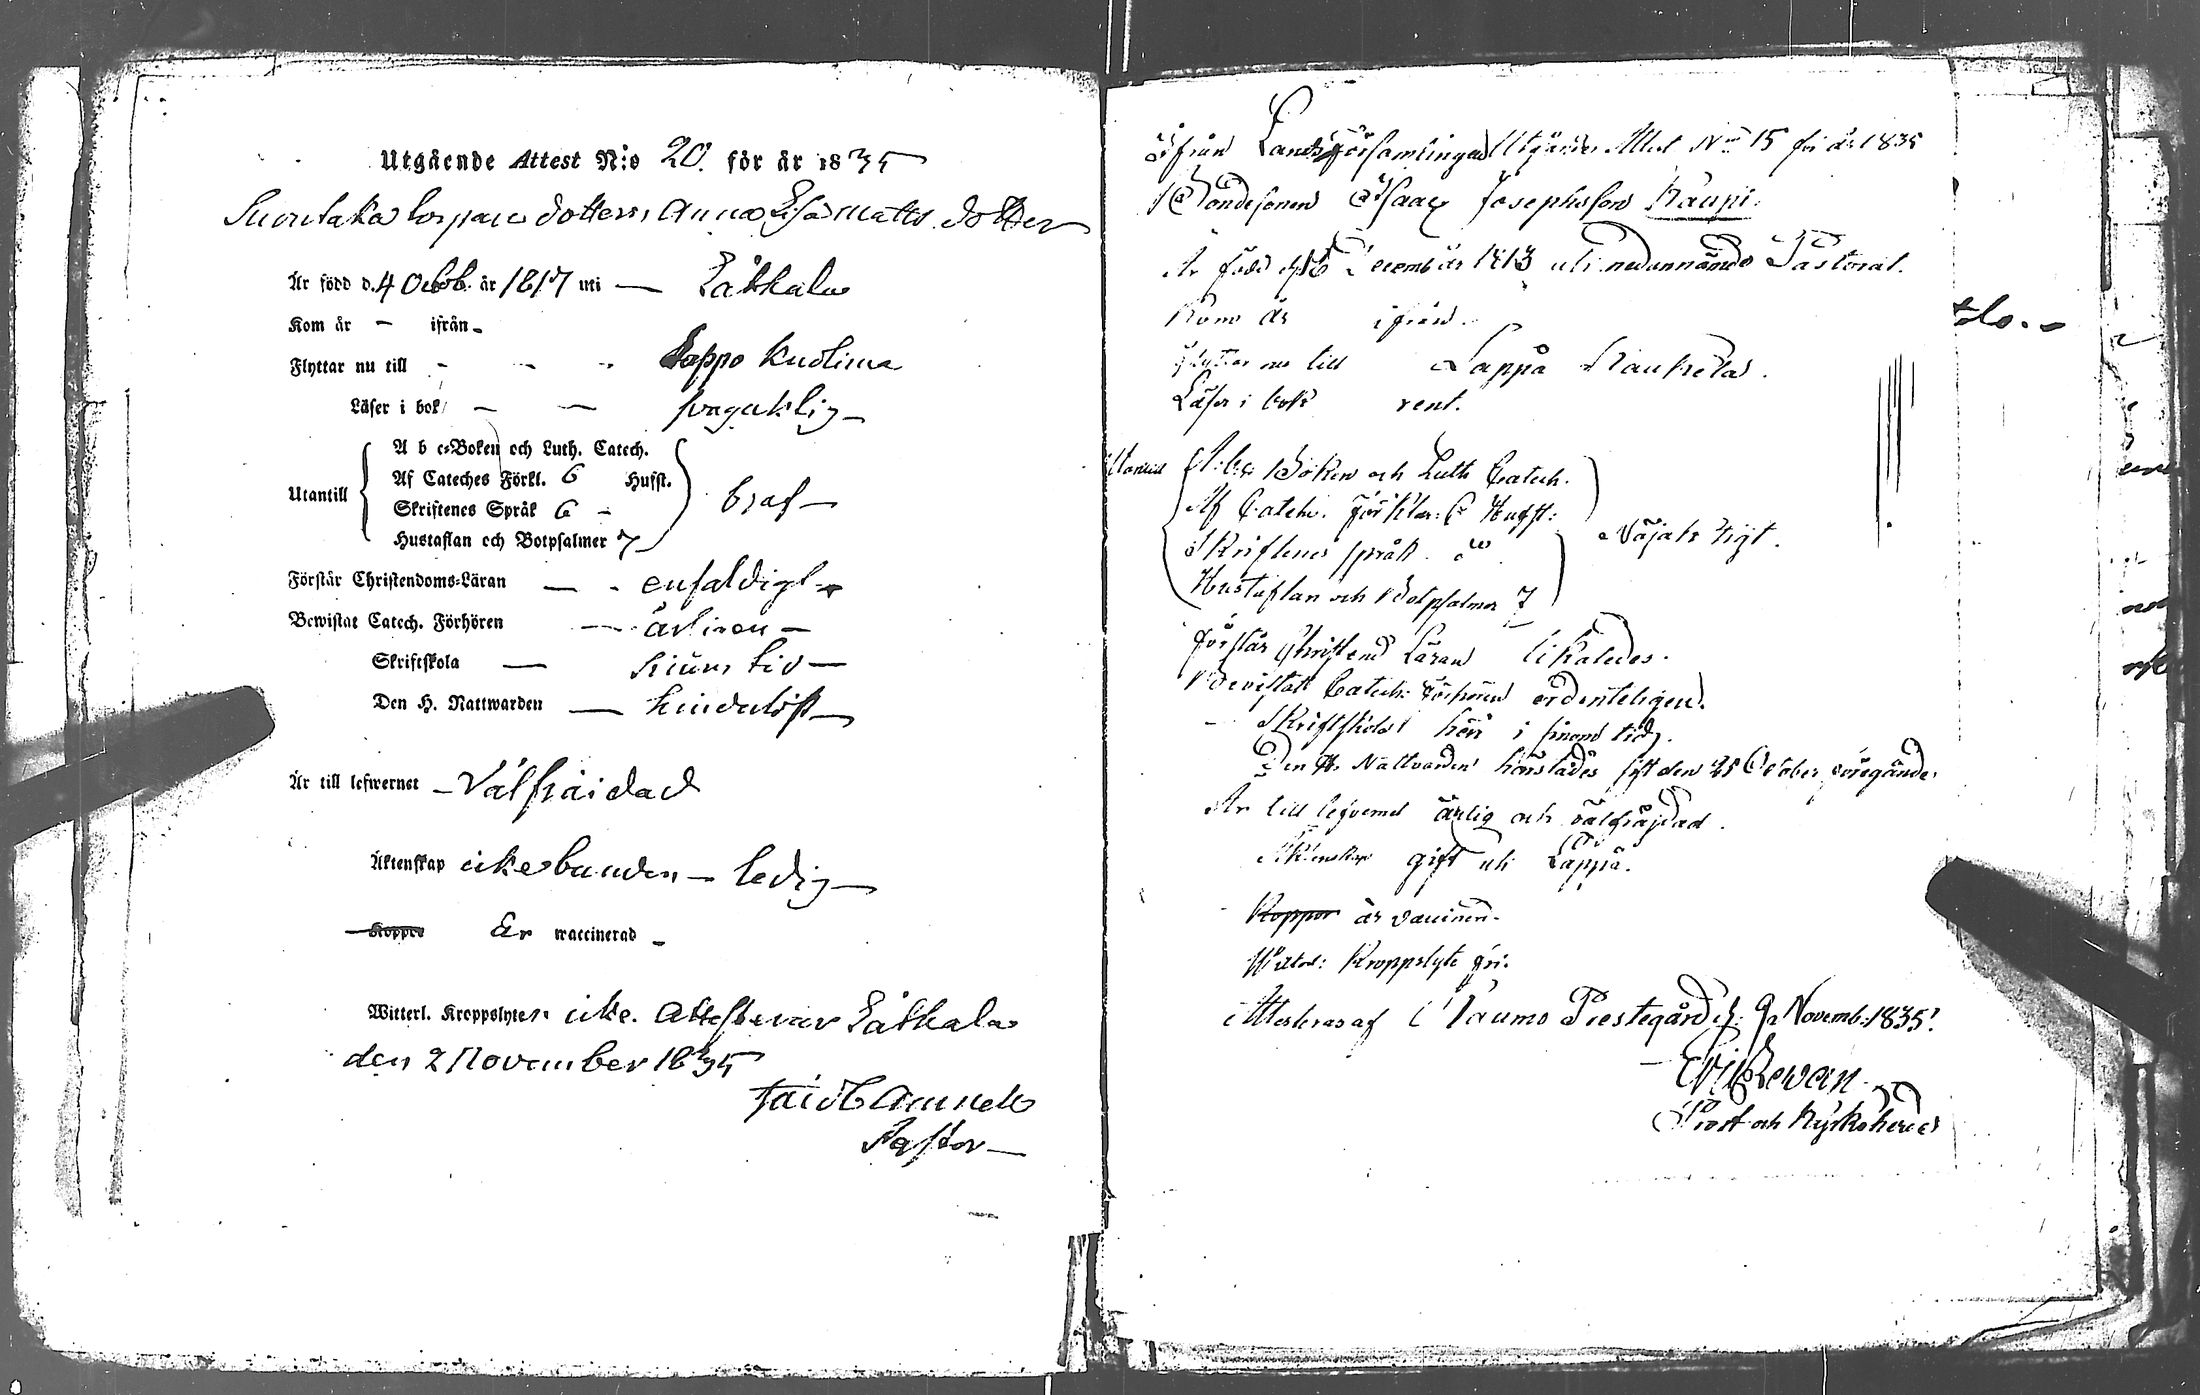 Utgående Attest N:o 20. för år 1835
Suontaka torpare dottern Anna Lisa Matts dotter
Är född d. 4 Octob. år 1817 uti — Låkkala
Kom år – ifrån –
Flyttar nu till - - - Lappo Kuolima
Läser i bok – —
Utantill
A b c-Boken och Luth. Catech.
Af Cateches Förkl. 6 Hufst.
Skriftenes Språk 6 –
Hustaflan och Botpsalmer 7
braf –
Förstår Christendoms-Läran — - enfaldigt
Bewistat Catech. Förhören —
Skriftskola — sin tid —
Den H. Nattwarden — hinderlöst —
Är till lefwernet – Välfräjdad
Äktenskap icke bunden – ledig –
Koppo Är waccinerad –
Witterl. Kroppslyten icke. Attesterar Låkkala
den 2 November 1835
Pastor —
Ifrån Landsförsamlingen Utgående Attest No 15 för år 1835
Bondesonen Isaac Josephsson Kaupi.
Är född d. 16 Decemb. år 1813 uti nedannämde Pastorat.
Kom år ifrån.
Flyttar nu till Lappå
Läser i bok rent.
Utantill
A:b:c: Boken och Luth Catech.
Af Catech. Förklar: 6 Hufst:
Skriftenes språk. do
Hustaflan och Botpsalmer 7
Förstår Christend Läran likaledes.
Bevistat Catech: Förhören ordenteligen.
Skriftskola här i sinom tid.
Den H. Nattvarden härstädes sist den 25 October föregånde
Är till lefvernet ärlig och välfräjdad.
Äktenskap gift uti Lappå.
Koppor är vaccinerd.
Witterl: Kroppslyte fri.
Attesteras af Raumo Prestegård d. 9 Novemb: 1835.
Prost och Kyrkoherde